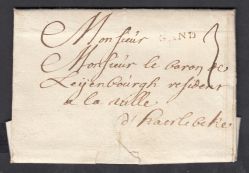 Monsieur
GAND 3
Monsieur le baron de
Leyenbourgh resident
a la ville
d'haerlebeke